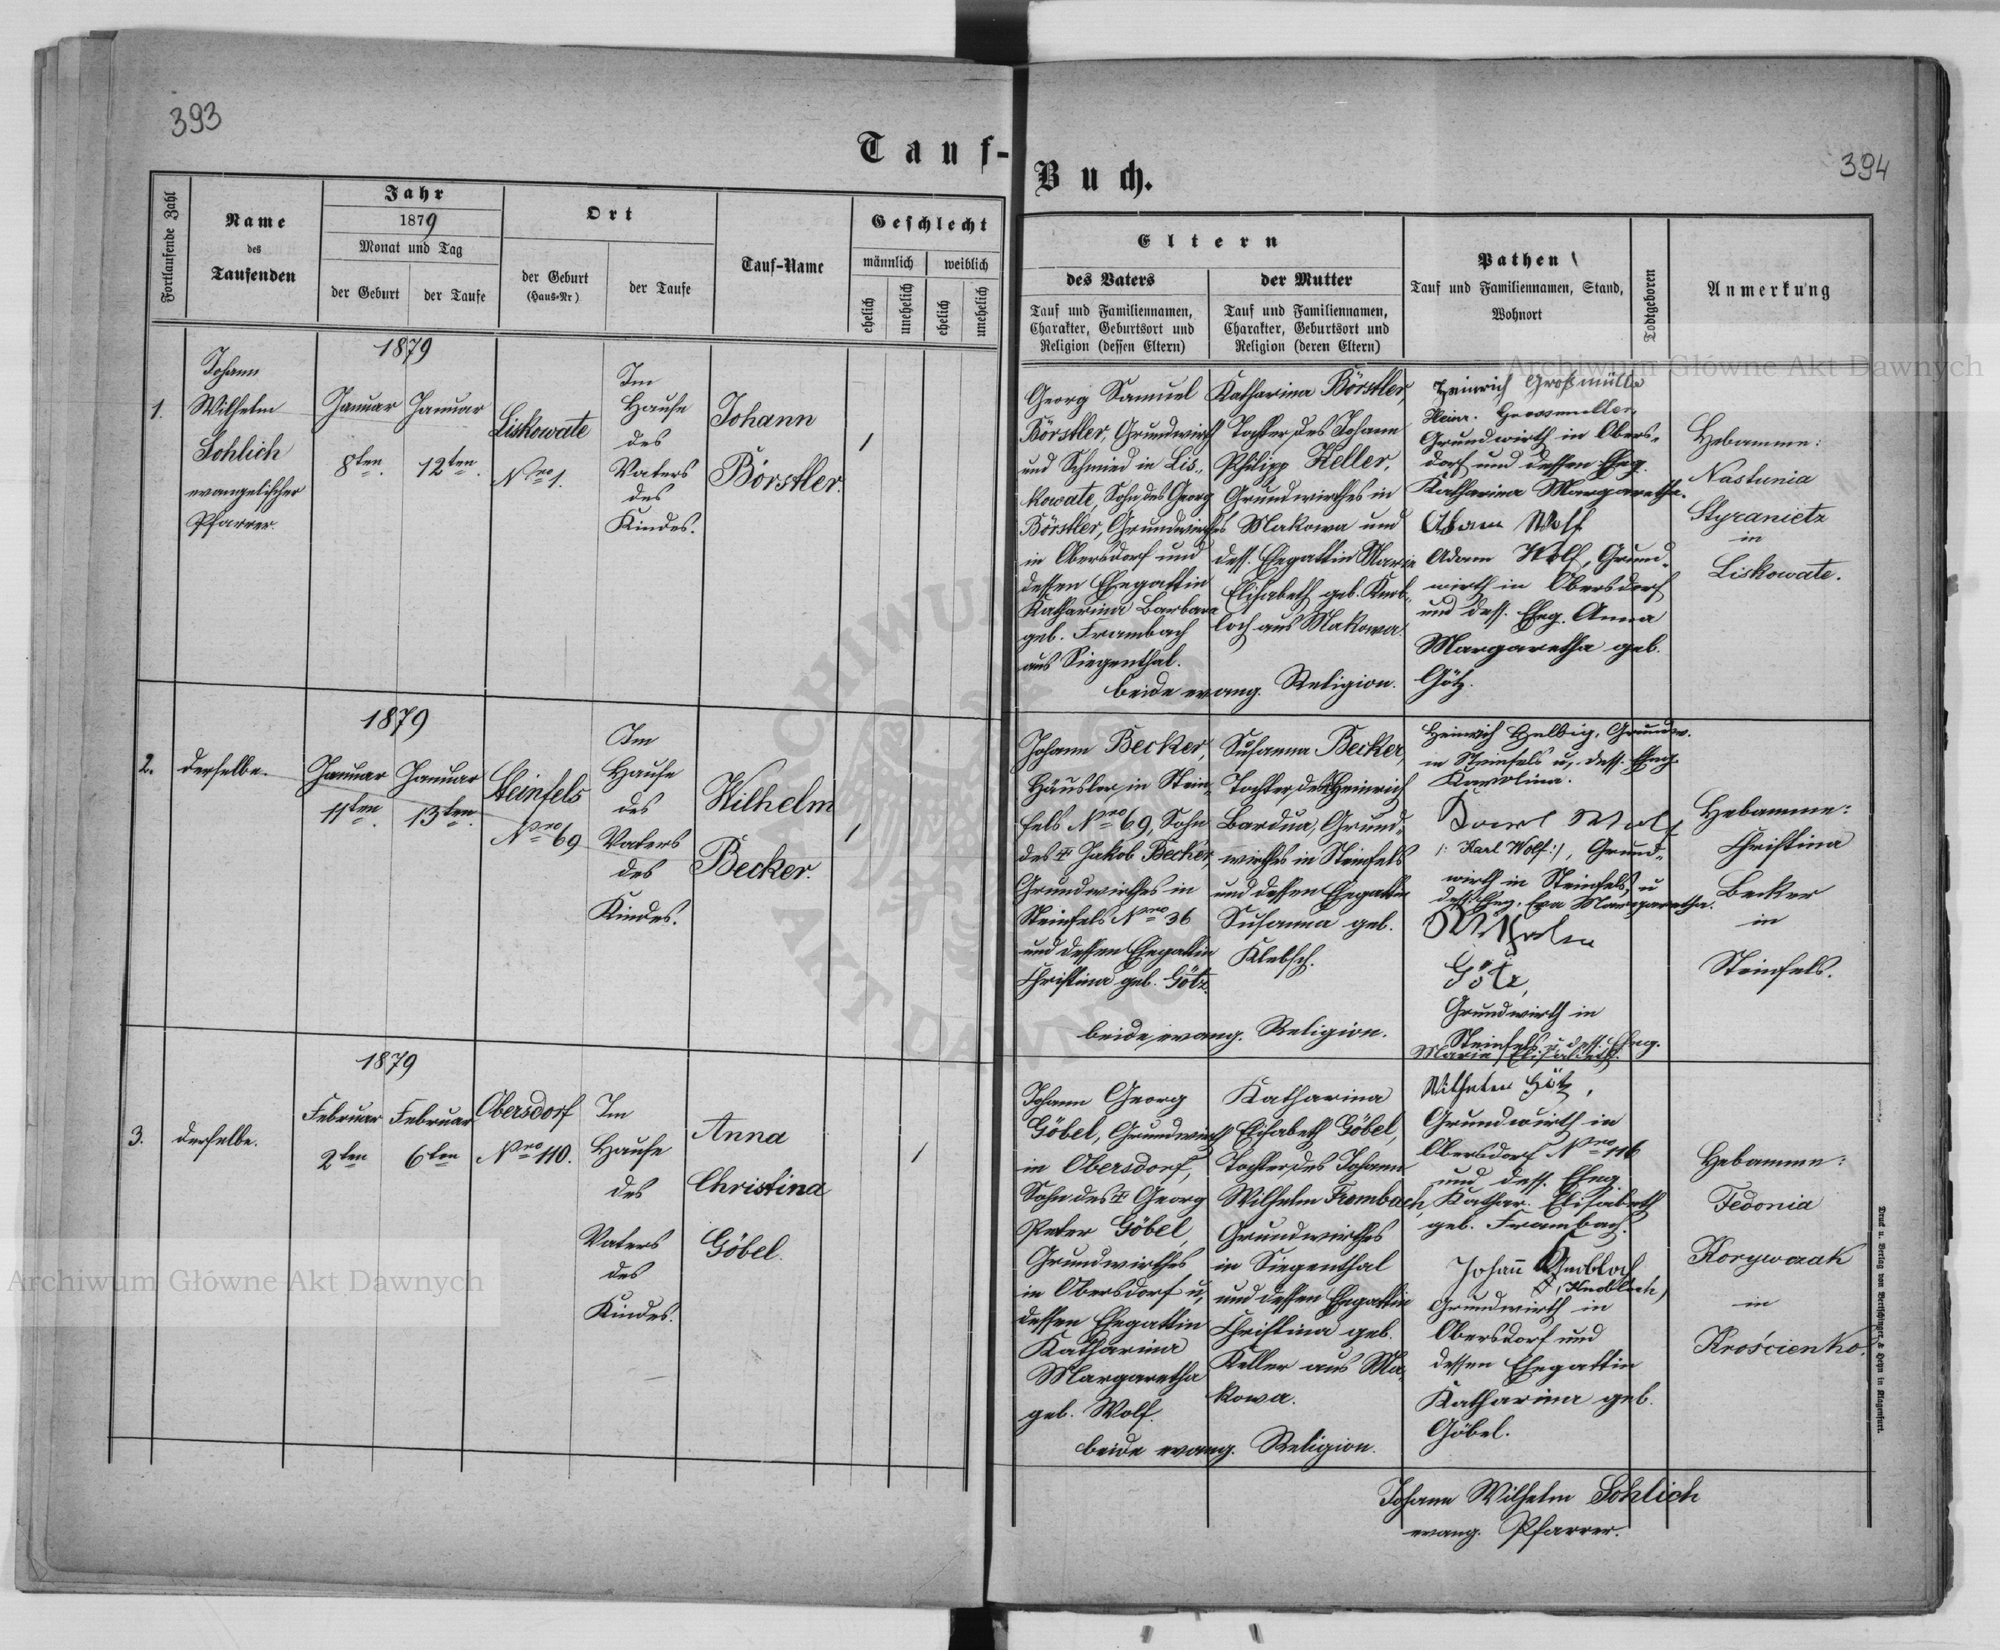 393
Tauf-
Fortlaufende Zahl
Name
des
Taufenden
Jahr
1879
Monat und Tag
der Geburt
der Taufe
Ort
der Geburt
(Haus-Nr)
der Taufe
Tauf-Name
Geschlecht
männlich
weiblich
ehelich
unehelich
ehelich
unehelich
1.
Johann
Wilhelm
Sohlich
evangelischer
Pfarrer.
1879
Januar
8ten.
Januar
12ten.
Liskowate
Nro 1.
Im
Hause
des
Vaters
des
Kindes.
Johann
Börstler.
/
2.
derselbe.
1879
Januar
11ten.
Januar
13ten.
Steinfels
Nro 69
Im
Hause
des
Vaters
des
Kindes.
Wilhelm
Becker.
/
3.
derselbe.
1879
Februar
2ten
Februar
6ten
Obersdorf
Nro 110.
Im
Hause
des
Vaters
des
Kindes.
Anna
Christina
Göbel.
/
394
Buch.
Eltern
des Vaters
Tauf und Familiennamen,
Charakter, Geburtsort und
Religion (dessen Eltern)
der Mutter
Tauf und Familiennamen,
Charakter, Geburtsort und
Religion (deren Eltern)
Pathen
Tauf und Familiennamen, Stand,
Wohnort
Todtgeboren
Anmerkung
Georg Samuel
Börstler, Grundwirth
und Schmied in Lis-
kowate, Sohn des Georg
Börstler, Grundwirthes
in Obersdorf und
dessen Ehegattin
Katharina Barbara
geb. Frambach
aus Siegenthal.
Katharina Börstler,
Tochter des Johann
Philipp Keller,
Grundwirthes in
Makowa und
dess. Ehegattin Maria
Elisabeth geb. Knob-
loch aus Makowa.
beide evang. Religion.
Heinrich Großmüller
Heinr. Grossmuller,
Grundwirth in Obers-
dorf und dessen Eheg.
Katharina Margaretha.
Adam Wolf
Adam Wolf, Grund-
wirth in Obersdorf
und dess. Eheg. Anna
Margaretha geb.
Götz.
Hebamme:
Nastunia
Styranietz
in
Liskowate.
Johann Becker,
Häusler in Stein-
fels Nro 69, Sohn
des + Jakob Becker,
Grundwirthes in
Steinfels Nro 36
und dessen Ehegattin
Christina geb. Götz.
Susanna Becker,
Tochter des Heinrich
Bardua, Grund-
wirthes in Steinfels
und dessen Ehegattin
Susanna geb.
Klebsch.
beide evang. Religion.
Heinrich Helbig, Grundw.
in Steinfels u. dess. Eheg.
Karolina.
Karl Wolf
/: Karl Wolf :/, Grund-
wirth in Steinfels u
dess. Eheg. Eva Margaretha.
Wilhelm
Götz,
Grundwirth in
Steinfels u. dess. Eheg.
Maria Elisabeth.
Hebamme:
Christina
Becker
in
Steinfels.
Johann Georg
Göbel, Grundwirth
in Obersdorf,
Sohn des + Georg
Peter Göbel,
Grundwirthes
in Obersdorf u.
dessen Ehegattin
Katharina
Margaretha
geb. Wolf.
Katharina
Elisabeth Göbel,
Tochter des Johann
Wilhelm Frombach,
Grundwirthes
in Siegenthal
und dessen Ehegattin
Christina geb.
Keller aus Ma-
kowa.
beide evang. Religion.
Wilhelm Götz,
Grundwirth in
Obersdorf Nro 116
und dess. Eheg.
Kathar. Elisabeth
geb. Frambach.
Johann Knobloch
(Knobloch)
Grundwirth in
Obersdorf und
dessen Ehegattin
Katharina geb.
Göbel.
Hebamme:
Fedonia
Korywczak
in
Krościenko.
Johann Wilhelm Sohlich
evang. Pfarrer.
Druck u. Verlag von Bertschinger & Heyn in Klagenfurt.
Archiwum Główne Akt Dawnych
Archiwum Główne Akt Dawnych
ARCHIWUM
AKT DAWNYCH